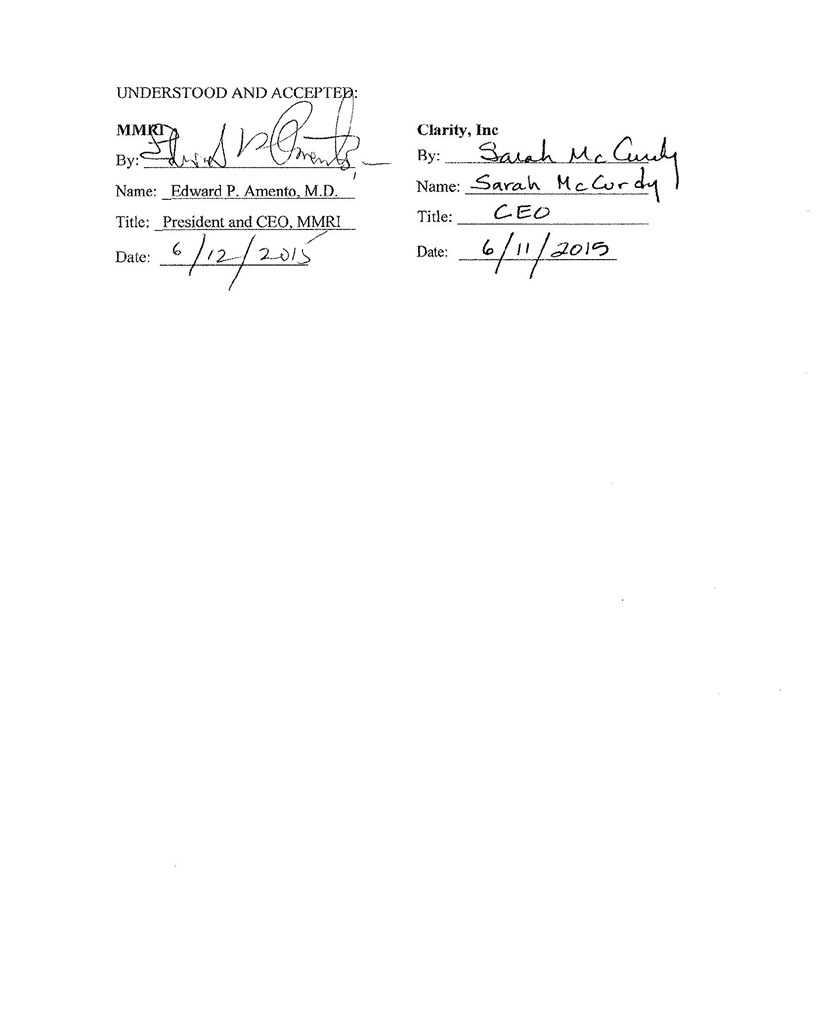 UNDERSTOOD AND ACCEPTED:
MMRI
By: Edward P. Amento
Name: Edward P. Amento, M.D.
Title: President and CEO, MMRI
Date: 6/12/2015
Clarity, Inc
By: Sarah McCurdy
Name: Sarah McCurdy
Title: CEO
Date: 6/11/2015